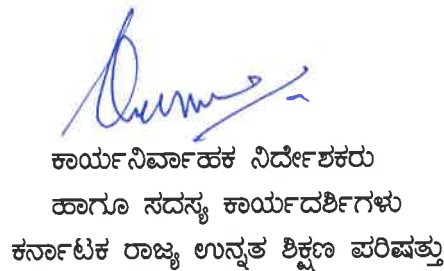 ಕಾರ್ಯನಿರ್ವಾಹಕ ನಿರ್ದೇಶಕರು
ಹಾಗೂ ಸದಸ್ಯ ಕಾರ್ಯದರ್ಶಿಗಳು
ಕರ್ನಾಟಕ ರಾಜ್ಯ ಉನ್ನತ ಶಿಕ್ಷಣ ಪರಿಷತ್ತು